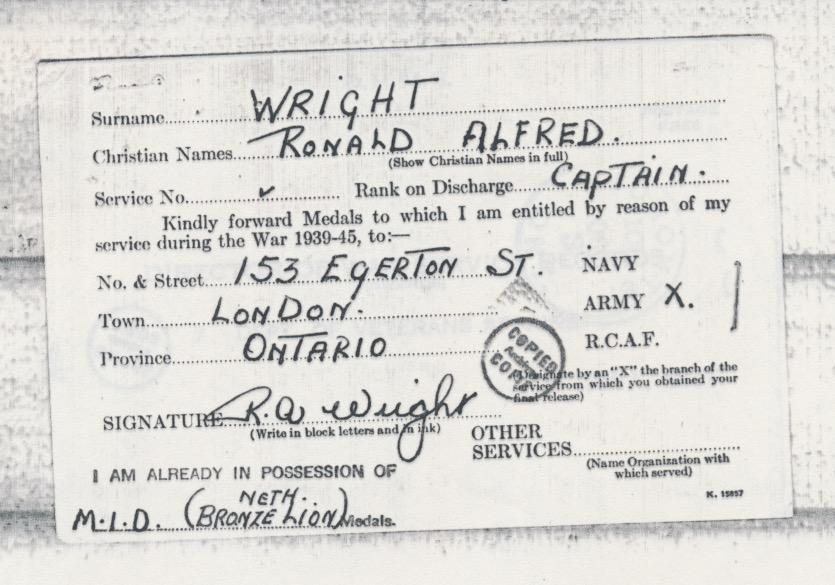 Surname WRIGHT
Christian Names RONALD ALFRED.
(Show Christian Names in full)
Service No. ✓ Rank on Discharge CAPTAIN.
Kindly forward Medals to which I am entitled by reason of my
service during the War 1939-45, to:—
No. & Street 153 EGERTON ST.
Town LONDON.
Province ONTARIO
NAVY
ARMY X.
R.C.A.F.
(Designate by an "X" the branch of the
service from which you obtained your
final release)
COPIED
COPIÉ
SIGNATURE R.A. Wright
(Write in block letters and in ink)
OTHER
SERVICES
(Name Organization with
which served)
I AM ALREADY IN POSSESSION OF
M.I.D. (NETH. BRONZE LION) Medals.
K. 15857